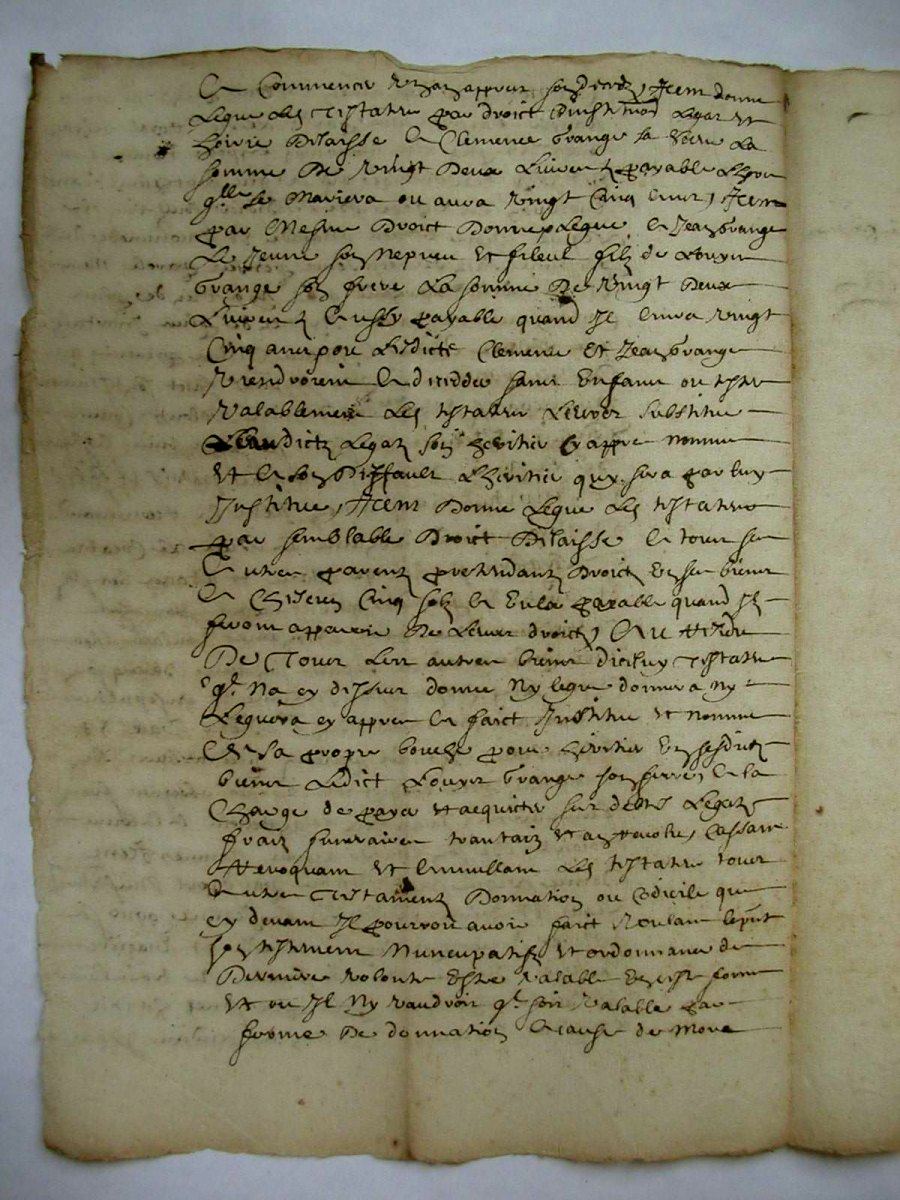 A Commencer Item donne
Legue Led. Testateur par droict dinst(itu)tion Legat et
hoirie Delaisse A Clemence Grange sa la
somme De Vingt Deux Livres payable Lhors
qlle se Mariera ou aura Vingt Cinq Item
par Mesme Droict Donne Legue A Jean Grange
Le Jeune son Nepveu et filleul filz de Louys
Grange son frere La somme De Vingt Deux
Livres Aussy payable quand Il Aura Vingt
Cinq ans Lesdicts Clemence Et Jean Grange
Viendroient A decedder sans Enfans ou
Valablement Led. testateur Leur substitue
Ausdictz Legatz son heritier cy appres nomme
et A son Deffault Lheritier quy sera par luy
Institue, Item Donne Legue Led. testateur
par semblable Droict Delaisse A tous ses
Autres parentz pretendantz Droictz En ses biens
A Chascun Cinq solz payable quand Ilz
feront apparoir De Leurs droictz,
De Tous Les autres biens dicelluy Testateur
ql Na cy dessus donne Ny legue donnera ny
Leguera cy appres A faict Institue et nomme
De sa propre bouche pour heritier En sesdictz
biens Ledict Louys Grange son frere, A la
Charge de payer et acquicter Legatz
fraiz funeraires Cassant
Revoquant et Annullant Led. testateur tous
Autres Testamentz Donnation ou Codicile que
cy devant Il pourroit avoir faict Voulant
testament Nuncupatif et ordonnance de
Derniere Volonte Estre valable En forme
et ou Il Ny vaudroit ql soit Valable par
forme De donnation A cause de Mort